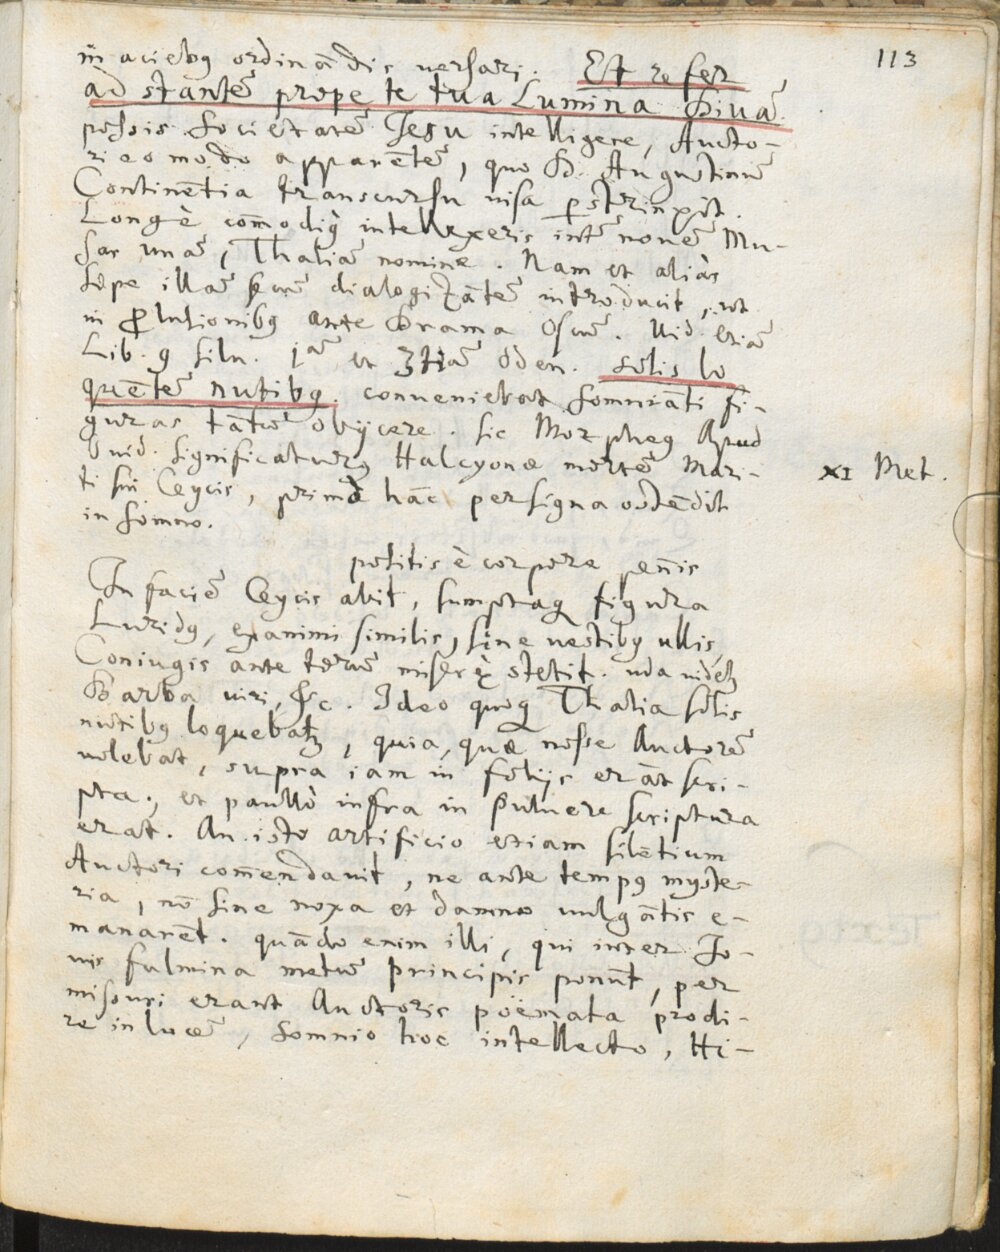 113
in aciebꝯ ordinādis versari. Et refer
ad stantē prope te tua Lumina Divā
possis Societatē Jesu intelligere, Aucto-
ri eo modo apparētē, quo D. Augustinū
Continētia transcursu visa pstrinxit.
Longè com̄odiꝯ intellexeris intꝰ novē Mu-
sas unā, Thaliā nomine. Nam et aliàs
sępe illā secū dialogizātē introducit, vt
in Prolusionibꝯ ante Drama Oscū. Vid. etiā
Lib. 9 Silv. 1ā et 3tiā Oden. solis lo
quētē nutibꝯ. conveniebat somniāti fi-
guras tātū obijcere. Sic Morpheꝯ Apud
Ovid. significaturꝯ Halcyonæ mortē Mari-
ti sui Ceycis, primò hāc per signa ostēdit
in somno.
XI Met.
positis è corpore pen̄is
In faciē Ceycis abit, sumptaqꝫ figura
Luridꝯ, exanimi similis, sine vestibꝯ ullis,
Coniugis ante torū miserę stetit. uda videtꝫ
Barba viri, &c. Ideo quoqꝫ Thalia solis
nutibꝯ loquebatꝫ, quia, quæ nosse Auctorē
volebat, supra iam in folijs erāt scri-
pta; et paullò infra in pulvere scriptura
erat. An isto artificio etiam silētium
Auctori com̄endavit, ne ante tempꝯ myste-
ria, nō sine noxa et damno vulgātis e-
manarēt. quādo enim illi, qui inter Jo-
vis fulmina metū principis ponūt, per
missuri erant Auctoris poëmata prodi-
re in lucē, somnio hoc intellecto, Hi-